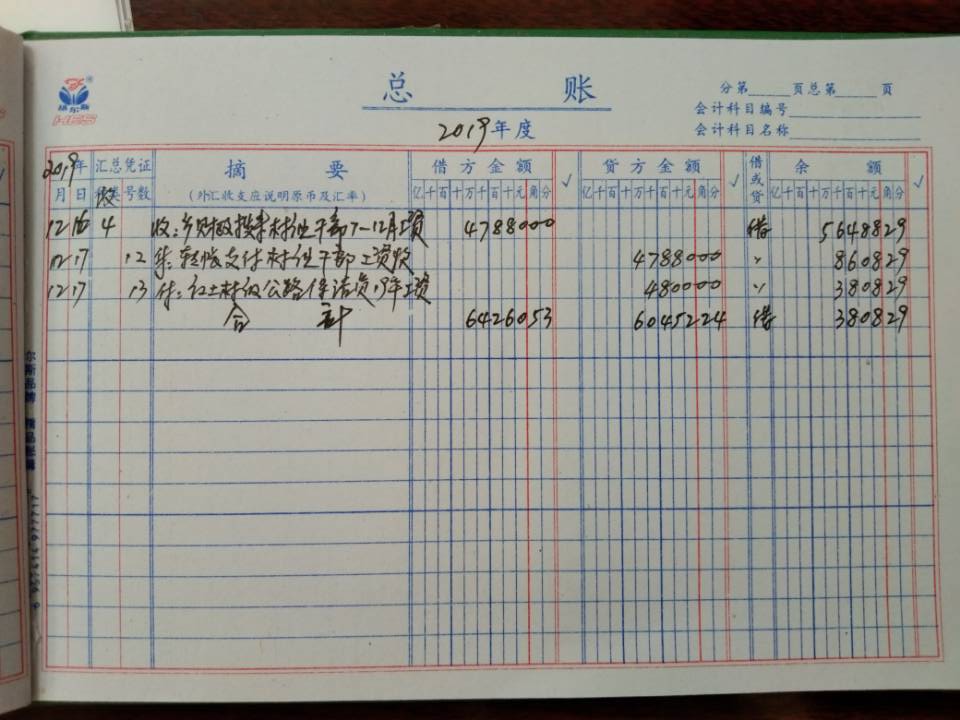 福尔斯
HES
总 账
分第 页总第 页
会计科目编号
会计科目名称
2019年度
2019年 汇总凭证 摘 要 借方金额 √ 贷方金额 √ 借或贷 余 额 √
月 日 种类 号数 (外汇收支应说明原币及汇率) 亿千百十万千百十元角分 亿千百十万千百十元角分 亿千百十万千百十元角分
12 16 4 收:乡财政拨来村组干部7-12月工资 4788000 借 5648829
12 17 12 付:转账支付村组干部工资款 4788000 〃 860829
12 17 13 付:红土村级公路保洁员19年工资 480000 〃 380829
合 计 6426053 6045224 借 380829